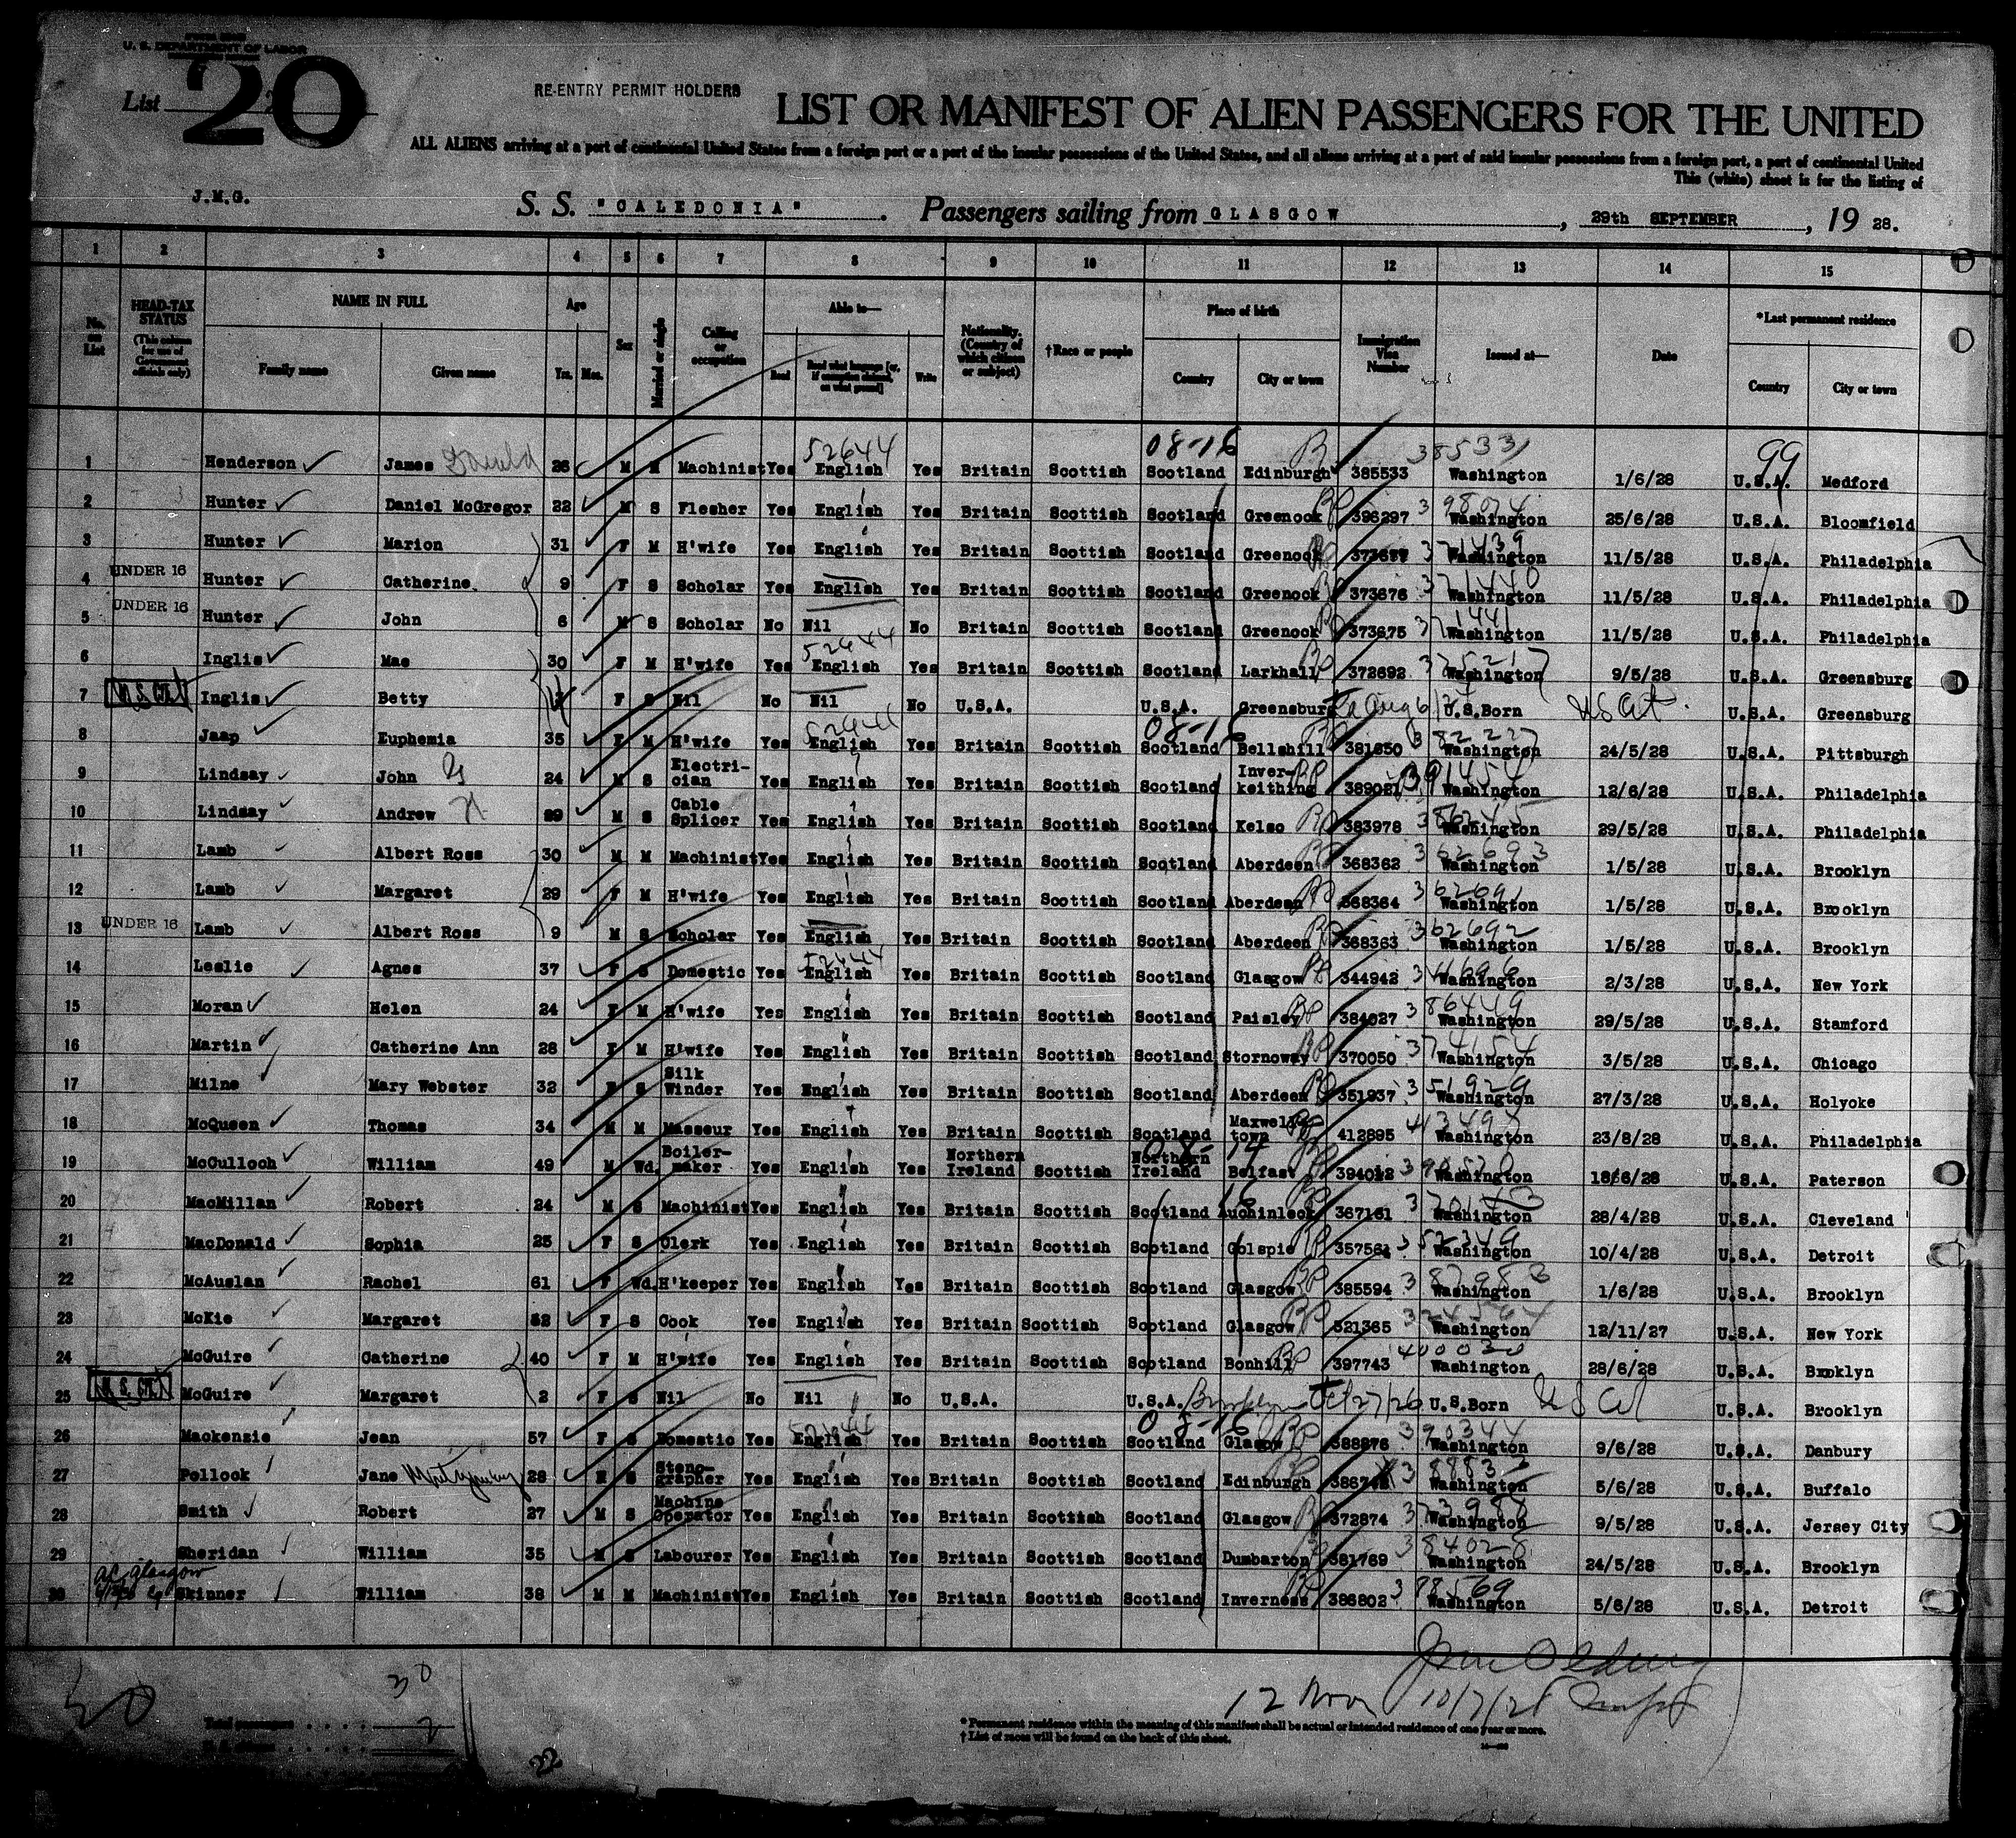 U. S. DEPARTMENT OF LABOR
List 20
RE-ENTRY PERMIT HOLDERS
LIST OR MANIFEST OF ALIEN PASSENGERS FOR THE UNITED
ALL ALIENS arriving at a port of continental United States from a foreign port or a port of the insular possessions of the United States, and all aliens arriving at a port of said insular possessions from a foreign port, a port of continental United
This (white) sheet is for the listing of
J.M.G.
S. S. "CALEDONIA" . Passengers sailing from GLASGOW , 29th SEPTEMBER , 19 28.
1 2 3 4 5 6 7 8 9 10 11 12 13 14 15
No. on List
HEAD-TAX STATUS (This column for use of Government officials only)
NAME IN FULL Family name Given name
Age Yrs. Mos.
Sex
Married or single
Calling or occupation
Able to— Read Read what language [or, if exemption claimed, on what ground] Write
Nationality. (Country of which citizen or subject)
†Race or people
Place of birth Country City or town
Immigration Visa Number
Issued at—
Date
*Last permanent residence Country City or town
52644 08-16 385331 99
1 Henderson James Donald 26 M M Machinist Yes English Yes Britain Scottish Scotland Edinburgh 385533 Washington 1/6/28 U.S.A. Medford
2 Hunter Daniel McGregor 22 M S Flesher Yes English Yes Britain Scottish Scotland Greenock 396297 Washington 25/6/28 U.S.A. Bloomfield
3 Hunter Marion 31 F M H'wife Yes English Yes Britain Scottish Scotland Greenock 371439 Washington 11/5/28 U.S.A. Philadelphia
4 UNDER 16 Hunter Catherine. 9 F S Scholar Yes English Yes Britain Scottish Scotland Greenock 373676 371440 Washington 11/5/28 U.S.A. Philadelphia
5 UNDER 16 Hunter John 6 M S Scholar No Nil No Britain Scottish Scotland Greenock 373675 371441 Washington 11/5/28 U.S.A. Philadelphia
52644
6 Inglis Mae 30 F M H'wife Yes English Yes Britain Scottish Scotland Larkhall 372692 Washington 9/5/28 U.S.A. Greensburg
7 U.S. CIT. Inglis Betty F S Nil No Nil No U.S.A. U.S.A. Greensburg U.S.Born US Cit. U.S.A. Greensburg
08-16
8 Jaap Euphemia 35 F M H'wife Yes English Yes Britain Scottish Scotland Bellshill 381650 382227 Washington 24/5/28 U.S.A. Pittsburgh
9 Lindsay John 24 M S Electrician Yes English Yes Britain Scottish Scotland Inver-keithing 391454 Washington 12/6/28 U.S.A. Philadelphia
10 Lindsay Andrew H 29 M S Cable Splicer Yes English Yes Britain Scottish Scotland Kelso 383978 386245 Washington 29/5/28 U.S.A. Philadelphia
11 Lamb Albert Ross 30 M M Machinist Yes English Yes Britain Scottish Scotland Aberdeen 368362 362693 Washington 1/5/28 U.S.A. Brooklyn
12 Lamb Margaret 29 F M H'wife Yes English Yes Britain Scottish Scotland Aberdeen 368364 362691 Washington 1/5/28 U.S.A. Brooklyn
13 UNDER 16 Lamb Albert Ross 9 M S Scholar Yes English Yes Britain Scottish Scotland Aberdeen 368363 362692 Washington 1/5/28 U.S.A. Brooklyn
52644
14 Leslie Agnes 37 F S Domestic Yes English Yes Britain Scottish Scotland Glasgow 344942 Washington 2/3/28 U.S.A. New York
15 Moran Helen 24 F M H'wife Yes English Yes Britain Scottish Scotland Paisley 384027 386449 Washington 29/5/28 U.S.A. Stamford
16 Martin Catherine Ann 28 F M H'wife Yes English Yes Britain Scottish Scotland Stornoway 370050 374154 Washington 3/5/28 U.S.A. Chicago
17 Milne Mary Webster 32 F S Silk Winder Yes English Yes Britain Scottish Scotland Aberdeen 351937 351929 Washington 27/3/28 U.S.A. Holyoke
18 McQueen Thomas 34 M M Masseur Yes English Yes Britain Scottish Scotland Maxwelltown 412895 Washington 23/8/28 U.S.A. Philadelphia
08-14
19 McCulloch William 49 M Wd. Boiler-maker Yes English Yes Northern Ireland Scottish Northern Ireland Belfast 394012 Washington 18/6/28 U.S.A. Paterson
16
20 MacMillan Robert 24 M S Machinist Yes English Yes Britain Scottish Scotland Auchinleck 367161 Washington 28/4/28 U.S.A. Cleveland
21 MacDonald Sophia 25 F S Clerk Yes English Yes Britain Scottish Scotland Golspie 357561 352349 Washington 10/4/28 U.S.A. Detroit
22 McAuslan Rachel 61 F Wd. H'keeper Yes English Yes Britain Scottish Scotland Glasgow 385594 387983 Washington 1/6/28 U.S.A. Brooklyn
23 McKie Margaret 52 F S Cook Yes English Yes Britain Scottish Scotland Glasgow 321365 Washington 12/11/27 U.S.A. New York
24 McGuire Catherine 40 F M H'wife Yes English Yes Britain Scottish Scotland Bonhill 397743 Washington 28/6/28 U.S.A. Brooklyn
25 U.S. CIT. McGuire Margaret 2 F S Nil No Nil No U.S.A. U.S.A. Brooklyn 27/26 U.S.Born US Cit U.S.A. Brooklyn
52644 08-16
26 Mackenzie Jean 57 F S Domestic Yes English Yes Britain Scottish Scotland Glasgow 388876 390344 Washington 9/6/28 U.S.A. Danbury
27 Pollock Jane Montgomery 28 S Steno-grapher Yes English Yes Britain Scottish Scotland Edinburgh Washington 5/6/28 U.S.A. Buffalo
28 Smith Robert 27 M S Machine Operator Yes English Yes Britain Scottish Scotland Glasgow 372874 373988 Washington 9/5/28 U.S.A. Jersey City
29 Sheridan William 35 M S Labourer Yes English Yes Britain Scottish Scotland Dumbarton 381769 384028 Washington 24/5/28 U.S.A. Brooklyn
Glasgow
30 Skinner William 38 M M Machinist Yes English Yes Britain Scottish Scotland Inverness 386802 388569 Washington 5/6/28 U.S.A. Detroit
30
Total passengers 2
12 10/7/28
* Permanent residence within the meaning of this manifest shall be actual or intended residence of one year or more.
† List of races will be found on the back of this sheet.
22